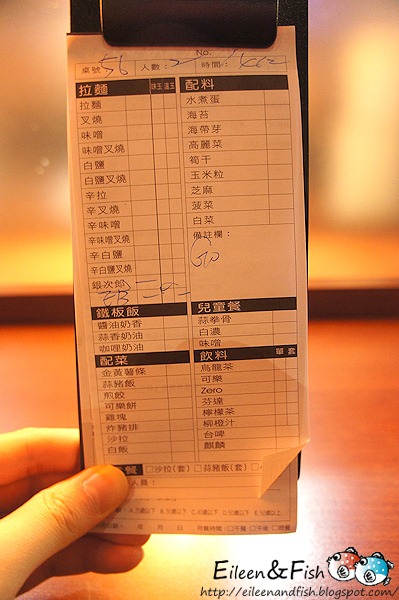 No.
桌號: 56 人數: 2 時間:
拉麵 味玉 溫玉
拉麵
叉燒
味噌
味噌叉燒
白鹽
白鹽叉燒
辛拉
辛叉燒
辛味噌
辛味噌叉燒
辛白鹽
辛白鹽叉燒
銀次郎
配料
水煮蛋
海苔
海帶芽
高麗菜
筍干
玉米粒
芝麻
菠菜
白菜
備註欄:
鐵板飯
醬油奶香
蒜香奶油
咖哩奶油
配菜
金黃薯條
蒜豬飯
煎餃
可樂餅
雞塊
炸豬排
沙拉
白飯
兒童餐
蒜拳骨
白濃
味噌
飲料 單 套
烏龍茶
可樂
Zero
芬達
檸檬茶
柳橙汁
台啤
麒麟
餐 □沙拉(套) □蒜豬飯(套)
人員:
Eileen&Fish
http://eileenandfish.blogspot.com/